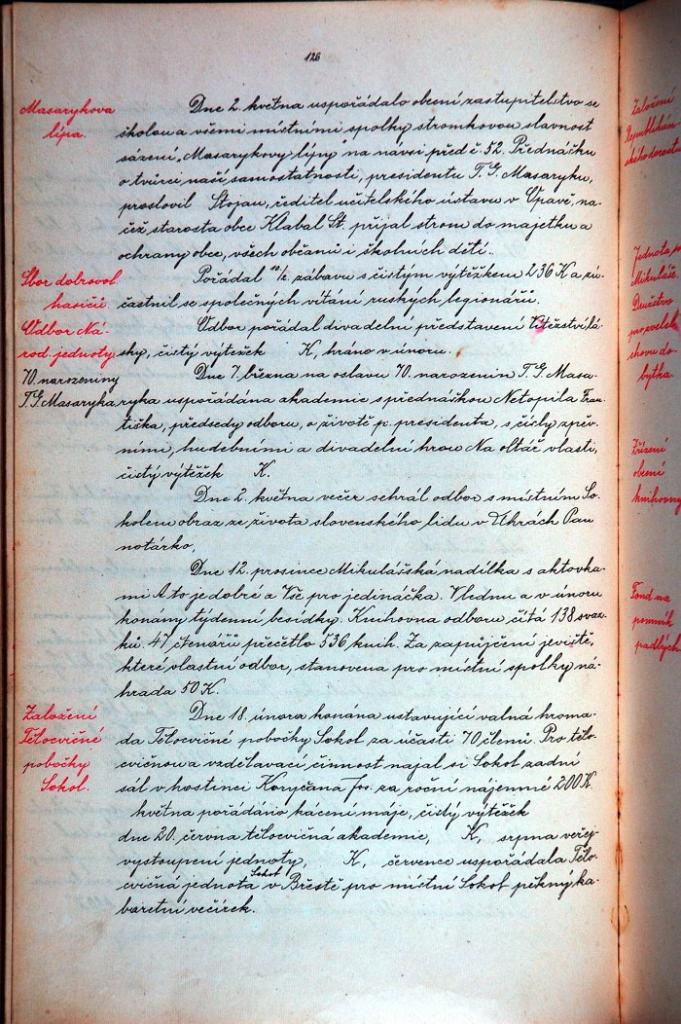 126
Masarykova
lípa.
Dne 2. května uspořádalo obecní zastupitelstvo se
školou a všemi místními spolky stromkovou slavnost
sázení „Masarykovy lípy" na návsi před č. 52. Přednášku
o tvůrci naší samostatnosti, presidentu T. G. Masaryku,
proslovil Stojan, ředitel učitelského ústavu v Opavě, na-
čež starosta obce Klabal St. přijal strom do majetku a
ochrany obce, všech občanů i školních dětí.
Sbor dobrovol.
hasičů.
Pořádal zábavu s čistým výtěžkem 236 K a zú-
častnil se společných vítání ruských legionářů.
Odbor Ná-
rod. jednoty
Odbor pořádal divadelní představení Vítězství lá-
sky, čistý výtěžek K, hráno v únoru.
70. narozeniny
T. G. Masaryka
Dne 7. března na oslavu 70. narozenin T. G. Masa-
ryka uspořádána akademie s přednáškou Netopila Fran-
tiška, předsedy odboru, o životě p. presidenta, s čísly zpěv-
ními, hudebními a divadelní hrou Na oltář vlasti,
čistý výtěžek K.
Dne 2. května večer sehrál odbor s místním So-
kolem obraz ze života slovenského lidu v Uhrách Pan
notárko.
Dne 12. prosince Mikulášská nadílka s aktovka-
mi A to je dobré a Vše pro jedináčka. V lednu a v únoru
konány týdenní besídky. Knihovna odboru čítá 138 svaz-
ků. 47 čtenářů přečetlo 536 knih. Za zapůjčení jeviště,
které vlastní odbor, stanovena pro místní spolky ná-
hrada 50 K.
Založení
Tělocvičné
pobočky
Sokol.
Dne 18. února konána ustavující valná hroma-
da Tělocvičné pobočky Sokol za účasti 70 členů. Pro tělo-
cvičnou a vzdělávací činnost najal si Sokol zadní
sál v hostinci Koryčana Jos. za roční nájemné 200 K.
května pořádáno kácení máje, čistý výtěžek
dne 20. června tělocvičná akademie, K, srpna veřej.
vystoupení jednoty, K, července uspořádala Tělo-
cvičná jednota Sokol v Břestě pro místní Sokol pěkný ka-
baretní večírek.
Založení
Republikán-
ského dorostu
Jednota
Mikuláš.
Družstvo
pro zvelek
chovu do-
bytka.
Zřízení
obecní
knihovny
Fond na
pomník
padlých.